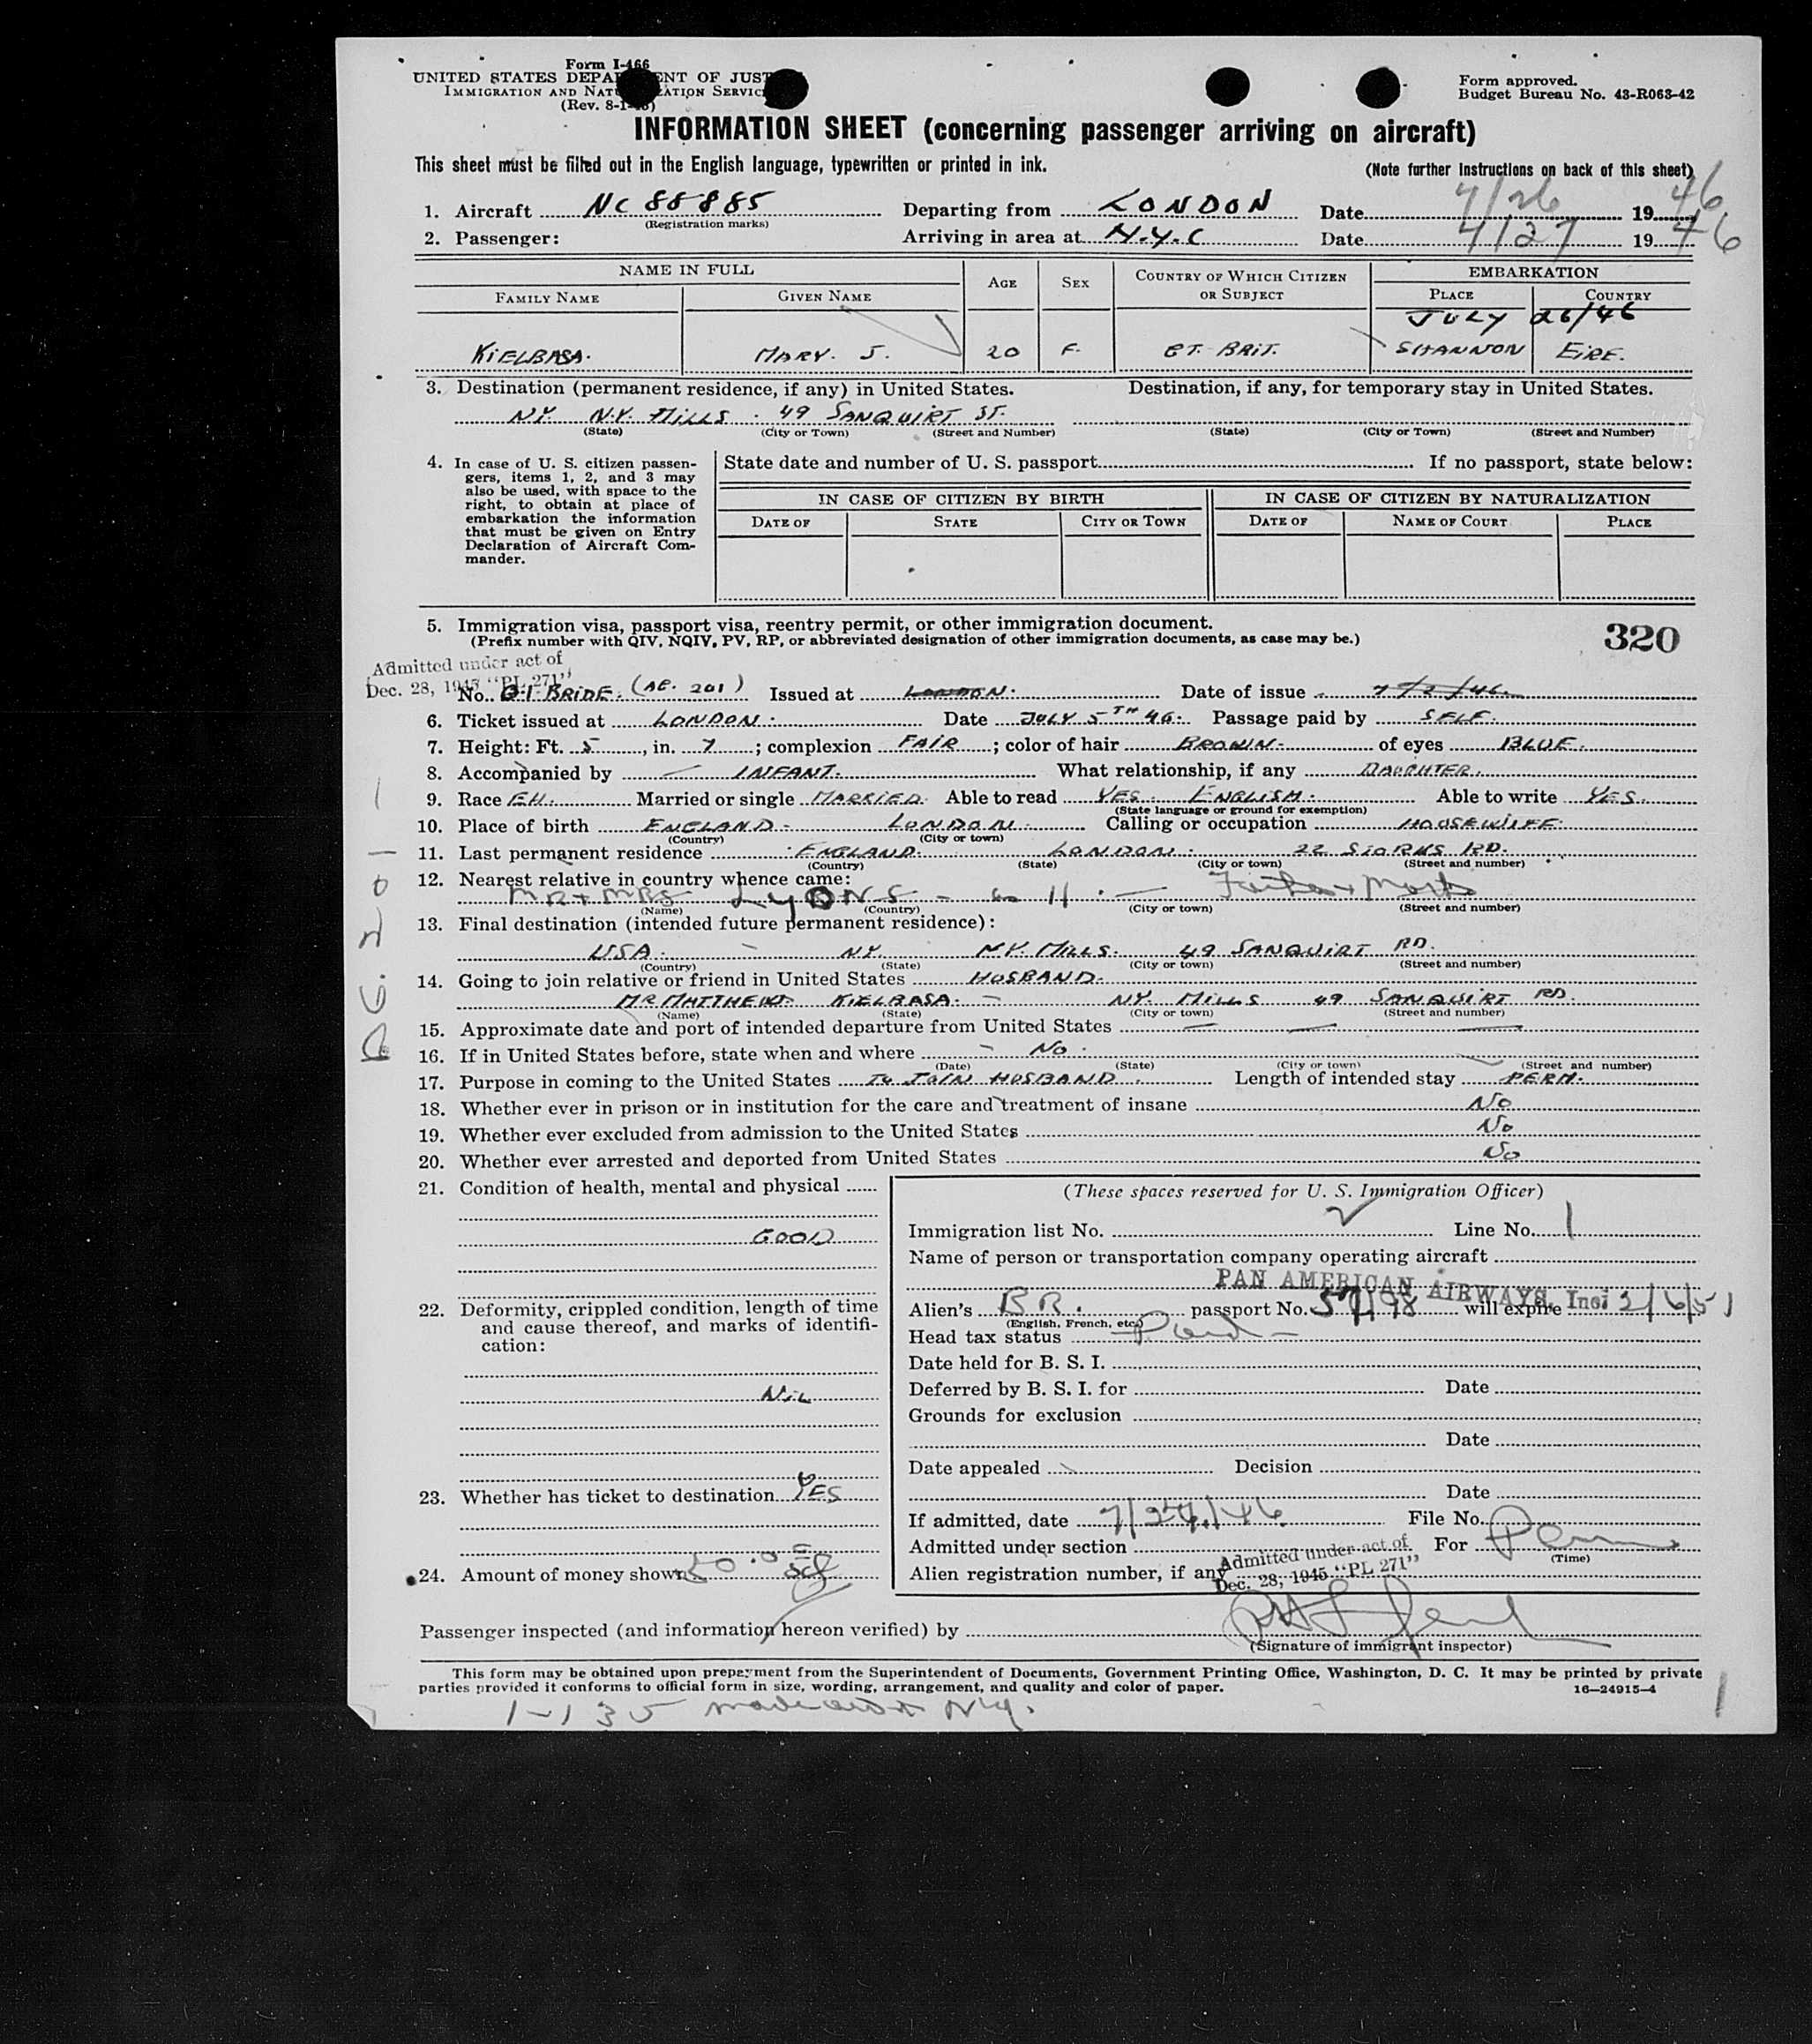 Form I-466
UNITED STATES DEPARTMENT OF JUSTICE
IMMIGRATION AND NATURALIZATION SERVICE
(Rev. 8-1-
Form approved.
Budget Bureau No. 43-R063-42
INFORMATION SHEET (concerning passenger arriving on aircraft)
This sheet must be filled out in the English language, typewritten or printed in ink. (Note further instructions on back of this sheet)
1. Aircraft NC 88885 Departing from LONDON Date 7/26 1946
(Registration marks)
2. Passenger: Arriving in area at N.Y.C Date 7/27 1946
NAME IN FULL AGE SEX COUNTRY OF WHICH CITIZEN OR SUBJECT EMBARKATION
FAMILY NAME GIVEN NAME PLACE COUNTRY
JULY 26/46
KIELBASA. MARY. J. 20 F. GT. BRIT. SHANNON EIRE.
3. Destination (permanent residence, if any) in United States. Destination, if any, for temporary stay in United States.
NY. N.Y. MILLS. 49 SANQUIRT ST.
(State) (City or Town) (Street and Number) (State) (City or Town) (Street and Number)
4. In case of U. S. citizen passen-
gers, items 1, 2, and 3 may
also be used, with space to the
right, to obtain at place of
embarkation the information
that must be given on Entry
Declaration of Aircraft Com-
mander.
State date and number of U. S. passport If no passport, state below:
IN CASE OF CITIZEN BY BIRTH IN CASE OF CITIZEN BY NATURALIZATION
DATE OF STATE CITY OR TOWN DATE OF NAME OF COURT PLACE
5. Immigration visa, passport visa, reentry permit, or other immigration document.
(Prefix number with QIV, NQIV, PV, RP, or abbreviated designation of other immigration documents, as case may be.)
320
Admitted under act of
Dec. 28, 1945 "PL 271"
No. G.I BRIDE. (AE. 201) Issued at LONDON. Date of issue 7/2/46.
6. Ticket issued at LONDON. Date JULY 5TH 46. Passage paid by SELF.
7. Height: Ft. 5, in. 7; complexion FAIR; color of hair BROWN of eyes BLUE.
8. Accompanied by INFANT. What relationship, if any DAUGHTER.
9. Race EH. Married or single MARRIED Able to read YES. ENGLISH. Able to write YES.
(State language or ground for exemption)
10. Place of birth ENGLAND LONDON Calling or occupation HOUSEWIFE
(Country) (City or town)
11. Last permanent residence ENGLAND. LONDON. 22 RD.
(Country) (State) (City or town) (Street and number)
12. Nearest relative in country whence came:
MR + MRS LYONS - 11
(Name) (Country) (City or town) (Street and number)
13. Final destination (intended future permanent residence):
USA. NY. N.Y. MILLS. 49 SANQUIRT RD.
(Country) (State) (City or town) (Street and number)
14. Going to join relative or friend in United States HUSBAND.
MR MATTHEW KIELBASA. NY. MILLS 49 SANQUIRT RD.
(Name) (State) (City or town) (Street and number)
15. Approximate date and port of intended departure from United States
16. If in United States before, state when and where No.
(Date) (State) (City or town) (Street and number)
17. Purpose in coming to the United States TO JOIN HUSBAND. Length of intended stay PERM.
18. Whether ever in prison or in institution for the care and treatment of insane No
19. Whether ever excluded from admission to the United States No
20. Whether ever arrested and deported from United States No
21. Condition of health, mental and physical
GOOD
22. Deformity, crippled condition, length of time
and cause thereof, and marks of identifi-
cation:
NIL
23. Whether has ticket to destination YES
24. Amount of money shown
(These spaces reserved for U. S. Immigration Officer)
Immigration list No. Line No. 1
Name of person or transportation company operating aircraft
PAN AMERICAN AIRWAYS, Inc.
Alien's BR. passport No. will expire 2/6/51
(English, French, etc.)
Head tax status Paid
Date held for B. S. I.
Deferred by B. S. I. for Date
Grounds for exclusion
Date
Date appealed Decision
Date
If admitted, date 7/27/46 File No.
Admitted under section For Perm
(Time)
Alien registration number, if any
Admitted under act of
Dec. 28, 1945 "PL 271"
Passenger inspected (and information hereon verified) by
(Signature of immigrant inspector)
This form may be obtained upon prepayment from the Superintendent of Documents, Government Printing Office, Washington, D. C. It may be printed by private
parties provided it conforms to official form in size, wording, arrangement, and quality and color of paper. 16—24915-4
1-135 made out NY.